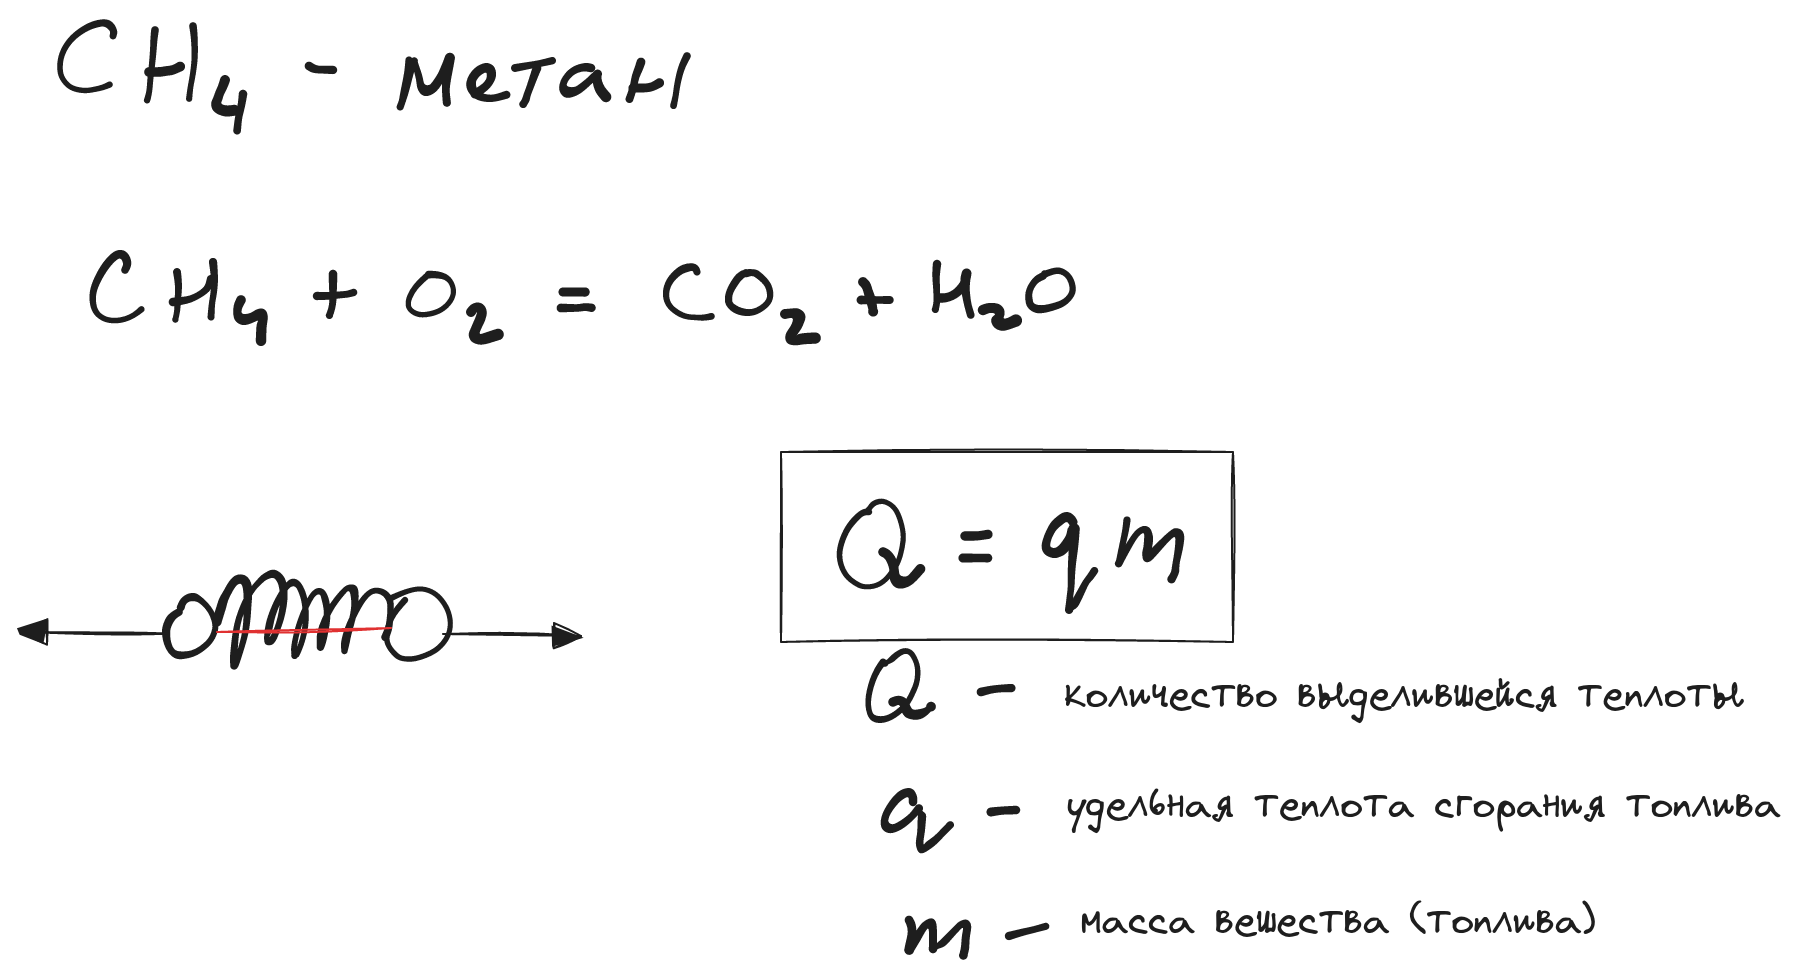 CH₄ - метан
CH₄ + O₂ = CO₂ + H₂O
Q = qm
Q - количество выделившейся теплоты
q - удельная теплота сгорания топлива
m - масса вещества (топлива)